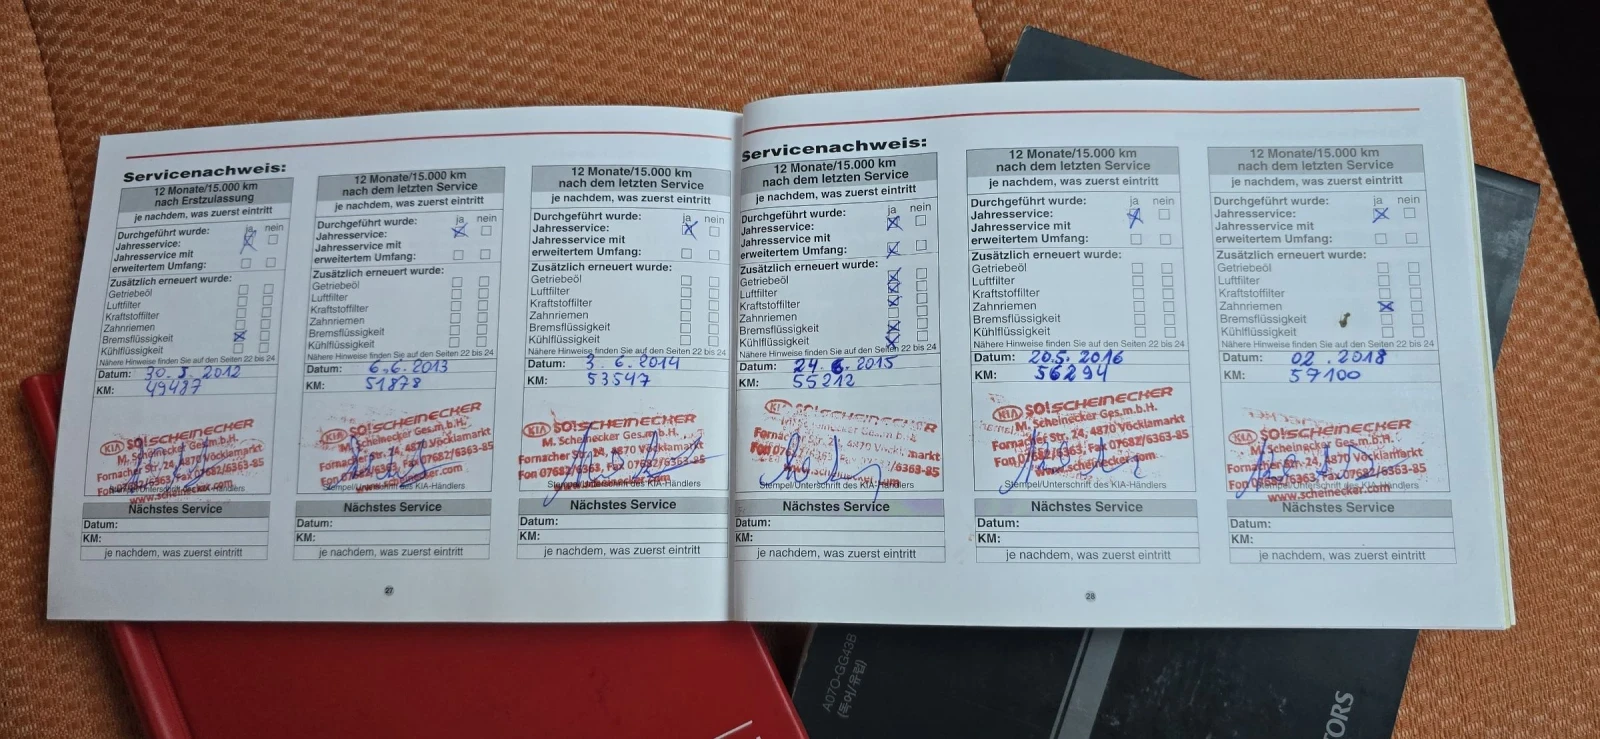 Servicenachweis:
12 Monate/15.000 km
nach Erstzulassung
je nachdem, was zuerst eintritt
Durchgeführt wurde: ja nein
Jahresservice:
Jahresservice mit
erweitertem Umfang:
Zusätzlich erneuert wurde:
Getriebeöl
Luftfilter
Kraftstoffilter
Zahnriemen
Bremsflüssigkeit
Kühlflüssigkeit
Nähere Hinweise finden Sie auf den Seiten 22 bis 24
Datum: 30.5.2012
KM: 49487
KIA SO!SCHEINECKER
M. Scheinecker Ges.m.b.H.
Fornacher Str. 24, 4870 Vöcklamarkt
Fon 07682/6363, Fax 07682/6363-85
www.scheinecker.com
Stempel/Unterschrift des KIA-Händlers
Nächstes Service
Datum:
KM:
je nachdem, was zuerst eintritt
12 Monate/15.000 km
nach dem letzten Service
je nachdem, was zuerst eintritt
Durchgeführt wurde: ja nein
Jahresservice:
Jahresservice mit
erweitertem Umfang:
Zusätzlich erneuert wurde:
Getriebeöl
Luftfilter
Kraftstoffilter
Zahnriemen
Bremsflüssigkeit
Kühlflüssigkeit
Nähere Hinweise finden Sie auf den Seiten 22 bis 24
Datum: 6.6.2013
KM: 51878
KIA SO!SCHEINECKER
M. Scheinecker Ges.m.b.H.
Fornacher Str. 24, 4870 Vöcklamarkt
Fon 07682/6363, Fax 07682/6363-85
www.scheinecker.com
Stempel/Unterschrift des KIA-Händlers
Nächstes Service
Datum:
KM:
je nachdem, was zuerst eintritt
12 Monate/15.000 km
nach dem letzten Service
je nachdem, was zuerst eintritt
Durchgeführt wurde: ja nein
Jahresservice:
Jahresservice mit
erweitertem Umfang:
Zusätzlich erneuert wurde:
Getriebeöl
Luftfilter
Kraftstoffilter
Zahnriemen
Bremsflüssigkeit
Kühlflüssigkeit
Nähere Hinweise finden Sie auf den Seiten 22 bis 24
Datum: 3.6.2014
KM: 53547
KIA SO!SCHEINECKER
M. Scheinecker Ges.m.b.H.
Fornacher Str. 24, 4870 Vöcklamarkt
Fon 07682/6363, Fax 07682/6363-85
www.scheinecker.com
Stempel/Unterschrift des KIA-Händlers
Nächstes Service
Datum:
KM:
je nachdem, was zuerst eintritt
27
Servicenachweis:
12 Monate/15.000 km
nach dem letzten Service
je nachdem, was zuerst eintritt
Durchgeführt wurde: ja nein
Jahresservice:
Jahresservice mit
erweitertem Umfang:
Zusätzlich erneuert wurde:
Getriebeöl
Luftfilter
Kraftstoffilter
Zahnriemen
Bremsflüssigkeit
Kühlflüssigkeit
Nähere Hinweise finden Sie auf den Seiten 22 bis 24
Datum: 24.6.2015
KM: 55212
KIA SO!SCHEINECKER
Fornacher Str. 24, 4870 Vöcklamarkt
Stempel/Unterschrift des KIA-Händlers
Nächstes Service
Datum:
KM:
je nachdem, was zuerst eintritt
12 Monate/15.000 km
nach dem letzten Service
je nachdem, was zuerst eintritt
Durchgeführt wurde: ja nein
Jahresservice:
Jahresservice mit
erweitertem Umfang:
Zusätzlich erneuert wurde:
Getriebeöl
Luftfilter
Kraftstoffilter
Zahnriemen
Bremsflüssigkeit
Kühlflüssigkeit
Nähere Hinweise finden Sie auf den Seiten 22 bis 24
Datum: 20.5.2016
KM: 56294
KIA SO!SCHEINECKER
M. Scheinecker Ges.m.b.H.
Fornacher Str. 24, 4870 Vöcklamarkt
Fon 07682/6363, Fax 07682/6363-85
www.scheinecker.com
Stempel/Unterschrift des KIA-Händlers
Nächstes Service
Datum:
KM:
je nachdem, was zuerst eintritt
12 Monate/15.000 km
nach dem letzten Service
je nachdem, was zuerst eintritt
Durchgeführt wurde: ja nein
Jahresservice:
Jahresservice mit
erweitertem Umfang:
Zusätzlich erneuert wurde:
Getriebeöl
Luftfilter
Kraftstoffilter
Zahnriemen
Bremsflüssigkeit
Kühlflüssigkeit
Nähere Hinweise finden Sie auf den Seiten 22 bis 24
Datum: 02.2018
KM: 57100
KIA SO!SCHEINECKER
M. Scheinecker Ges.m.b.H.
Fornacher Str. 24, 4870 Vöcklamarkt
Fon 07682/6363, Fax 07682/6363-85
www.scheinecker.com
Stempel/Unterschrift des KIA-Händlers
Nächstes Service
Datum:
KM:
je nachdem, was zuerst eintritt
28
A07O-GG43B
(독어/유럽)
TORS